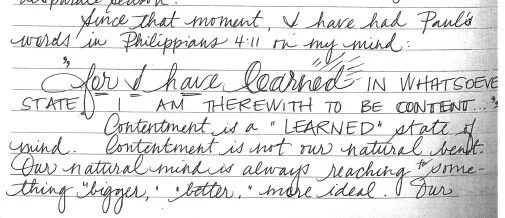 Since that moment, I have had Paul's
words in Philippians 4:11 on my mind:
"for I have learned IN WHATSOEVE
STATE I AM THEREWITH TO BE CONTENT..."
Contentment is a "LEARNED" state of
mind. Contentment is not our natural bent.
Our natural mind is always reaching to some-
thing "bigger," "better," "more ideal. Our